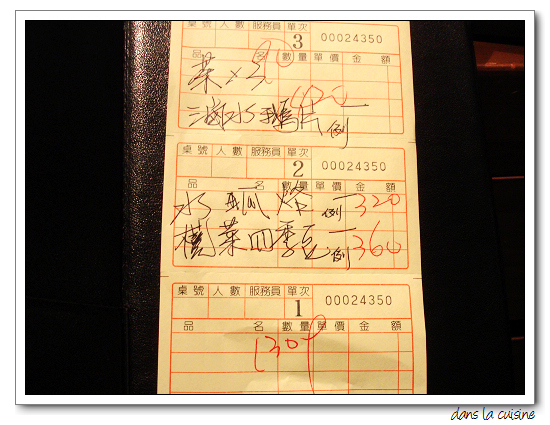 桌號 人數 服務員 單次
3 00024350
品 名 數量 單價 金額
茶×3
滷水鵝片 一例
桌號 人數 服務員 單次
2 00024350
品 名 數量 單價 金額
水 烙 一例 320
欖菜四季豆 一例 360
桌號 人數 服務員 單次
1 00024350
品 名 數量 單價 金額
1309
dans la cuisine